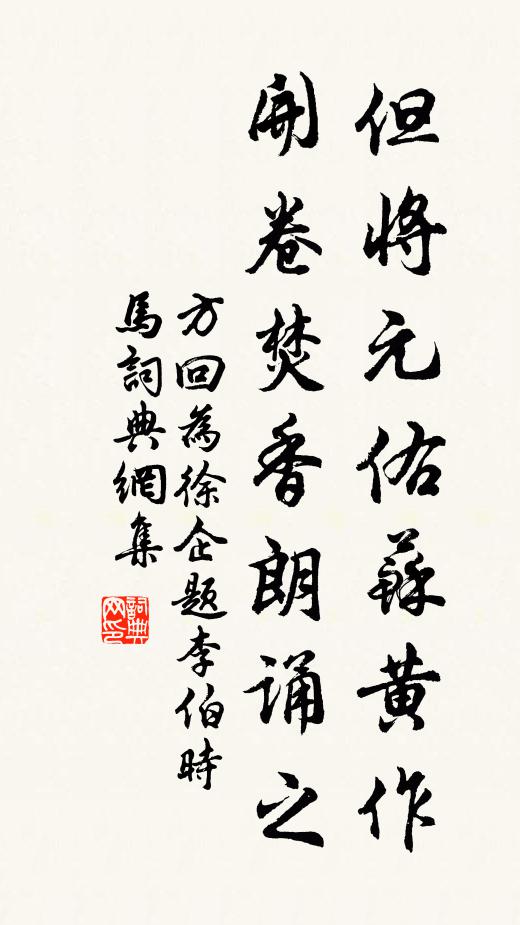 但將元佑蘇黃作
開卷焚香朗誦之
方回為徐企題李伯時
馬詞典網集
詞典网印